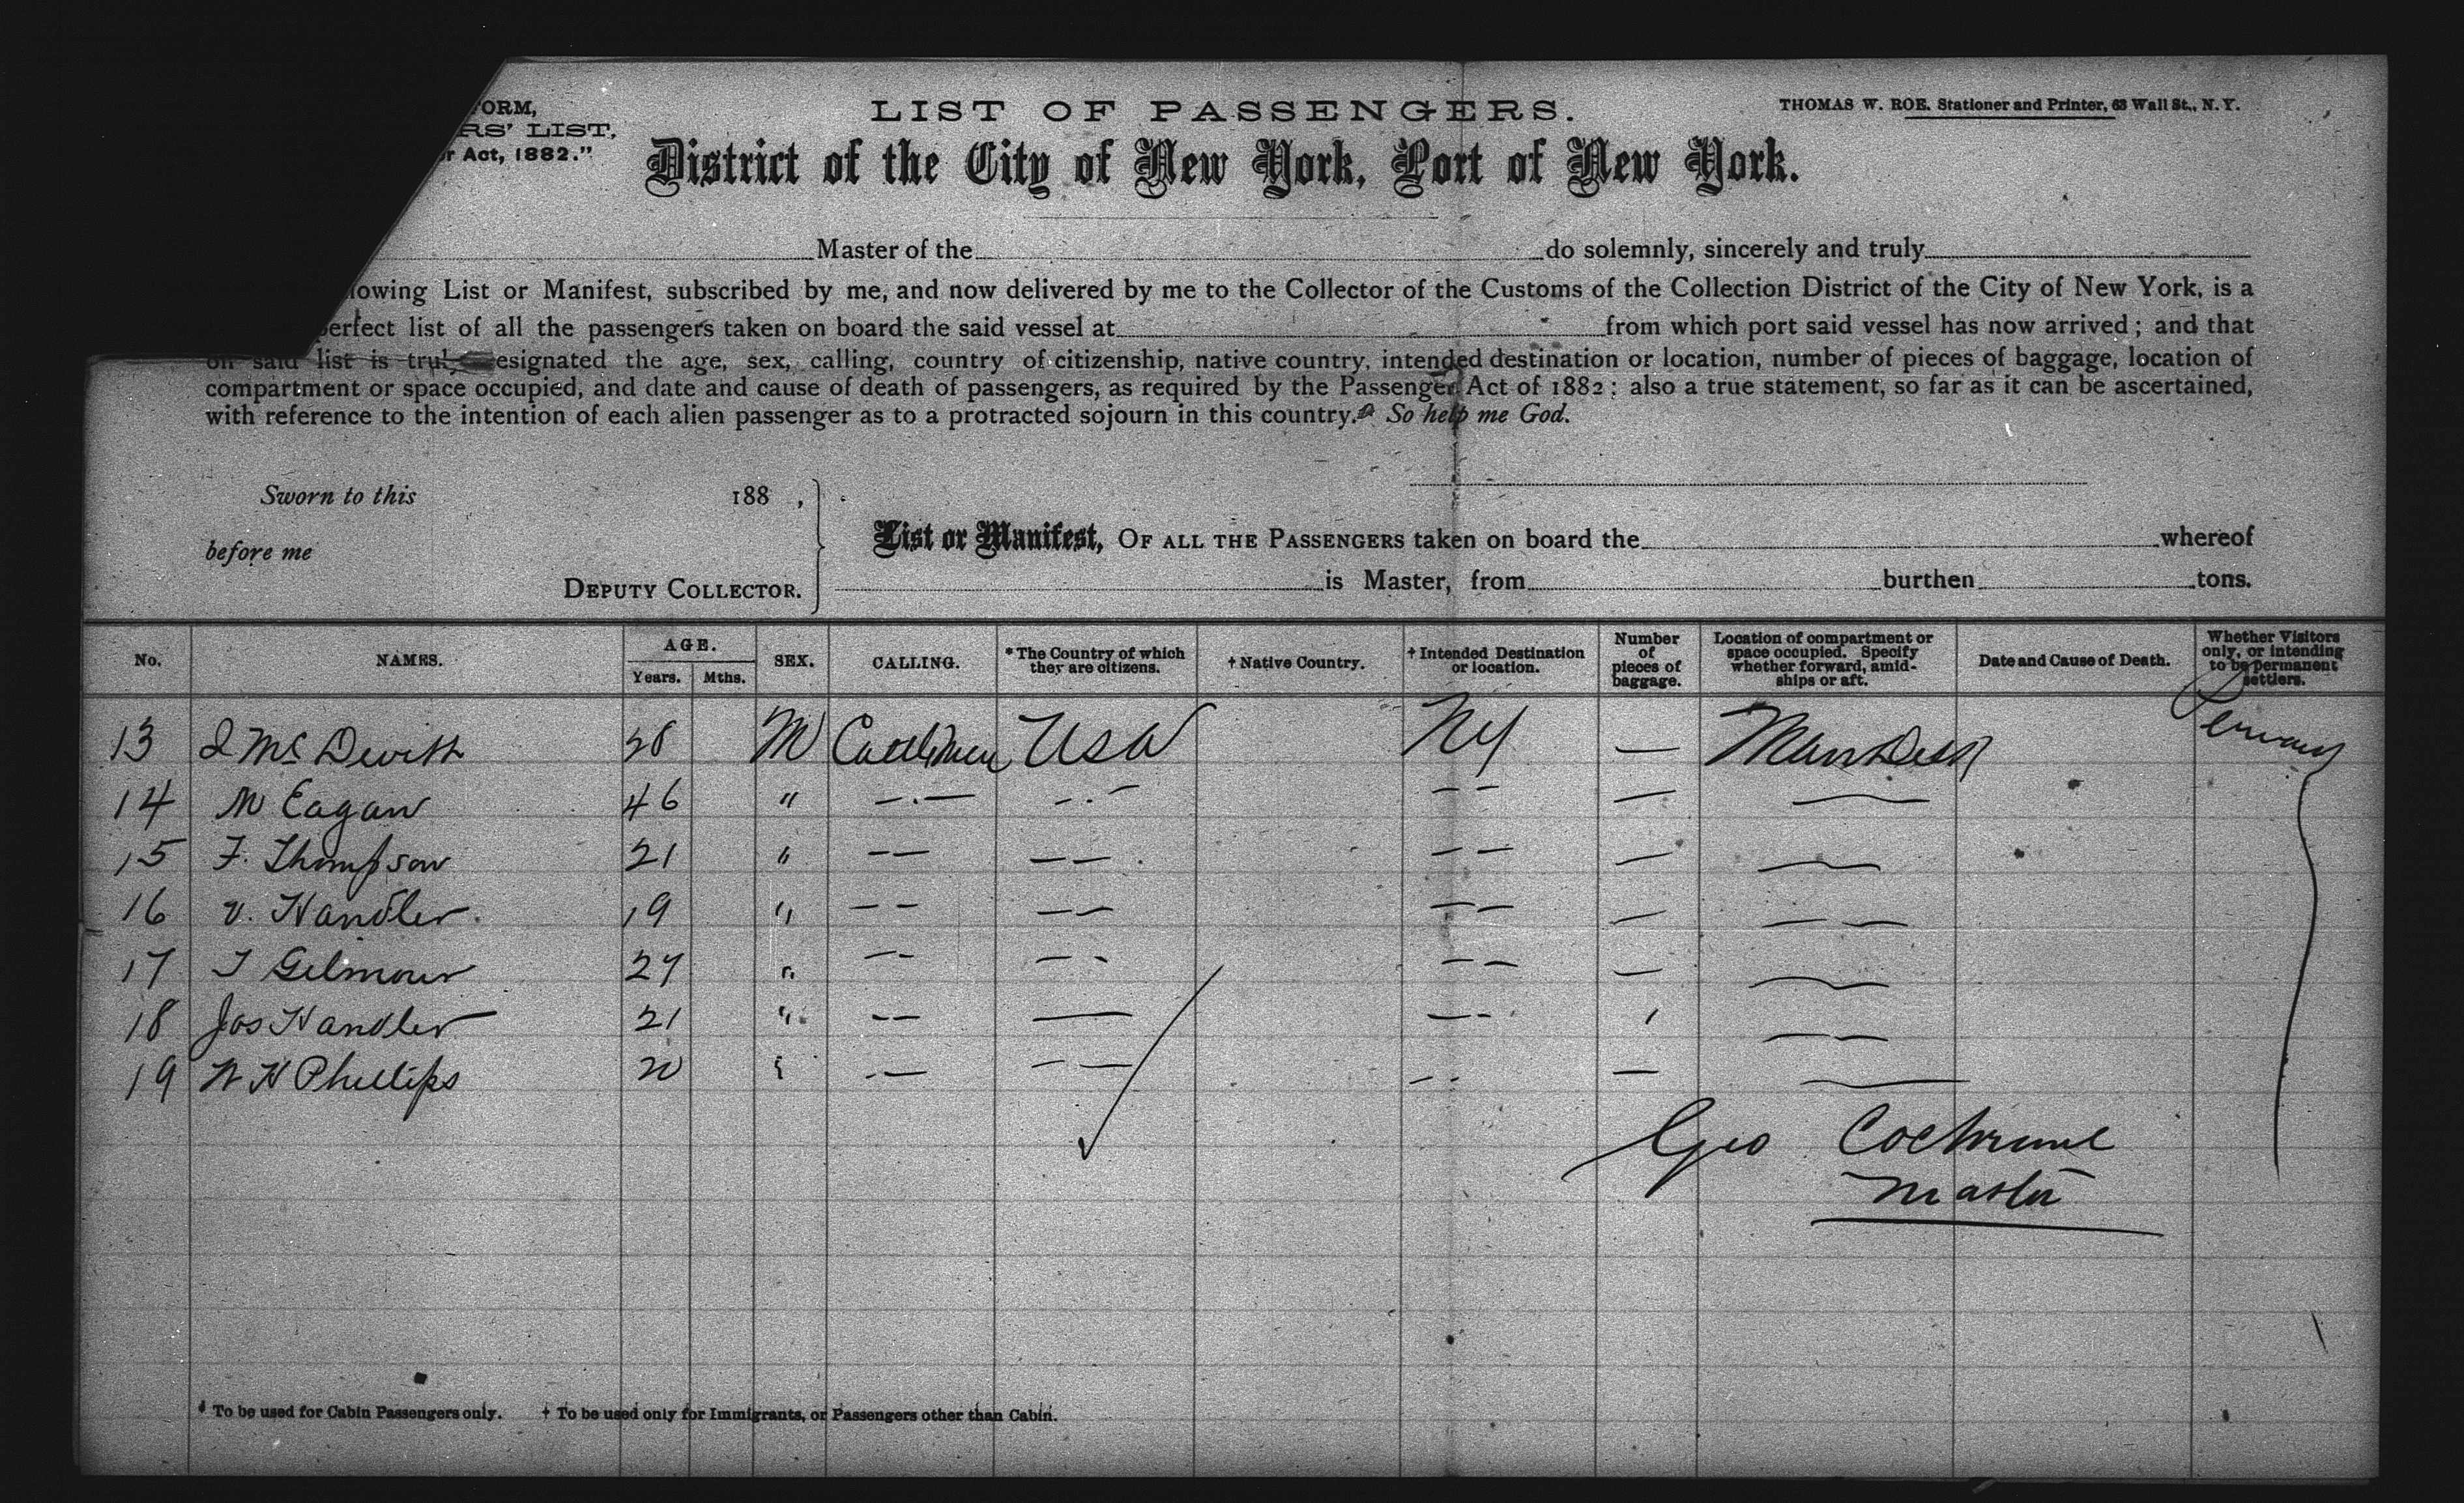 FORM,
RS' LIST,
r Act, 1882."
LIST OF PASSENGERS.
THOMAS W. ROE, Stationer and Printer, 63 Wall St., N.Y.
District of the City of New York, Port of New York.
Master of the do solemnly, sincerely and truly
lowing List or Manifest, subscribed by me, and now delivered by me to the Collector of the Customs of the Collection District of the City of New York, is a
perfect list of all the passengers taken on board the said vessel at from which port said vessel has now arrived; and that
on said list is truly esignated the age, sex, calling, country of citizenship, native country, intended destination or location, number of pieces of baggage, location of
compartment or space occupied, and date and cause of death of passengers, as required by the Passenger Act of 1882; also a true statement, so far as it can be ascertained,
with reference to the intention of each alien passenger as to a protracted sojourn in this country. So help me God.
Sworn to this 188 ,
before me
DEPUTY COLLECTOR.
List or Manifest, OF ALL THE PASSENGERS taken on board the whereof
is Master, from burthen tons.
No. NAMES. AGE. Years. Mths. SEX. CALLING. * The Country of which they are citizens. † Native Country. † Intended Destination or location. Number of pieces of baggage. Location of compartment or space occupied. Specify whether forward, amidships or aft. Date and Cause of Death. Whether Visitors only, or intending to be permanent settlers.
13 McDevitt 28 M Cattlemen USA NY —
14 M Eagan 46 " — — — — —
15 F. Thompson 21 " — — — — —
16 V. Handler 19 " — — — — —
17 T Gilmour 27 " — — — — —
18 Jos Handler 21 " — — — — 1
19 W H Phillips 20 " — — — — —
Geo Cochrane
Master
* To be used for Cabin Passengers only. † To be used only for Immigrants, or Passengers other than Cabin.